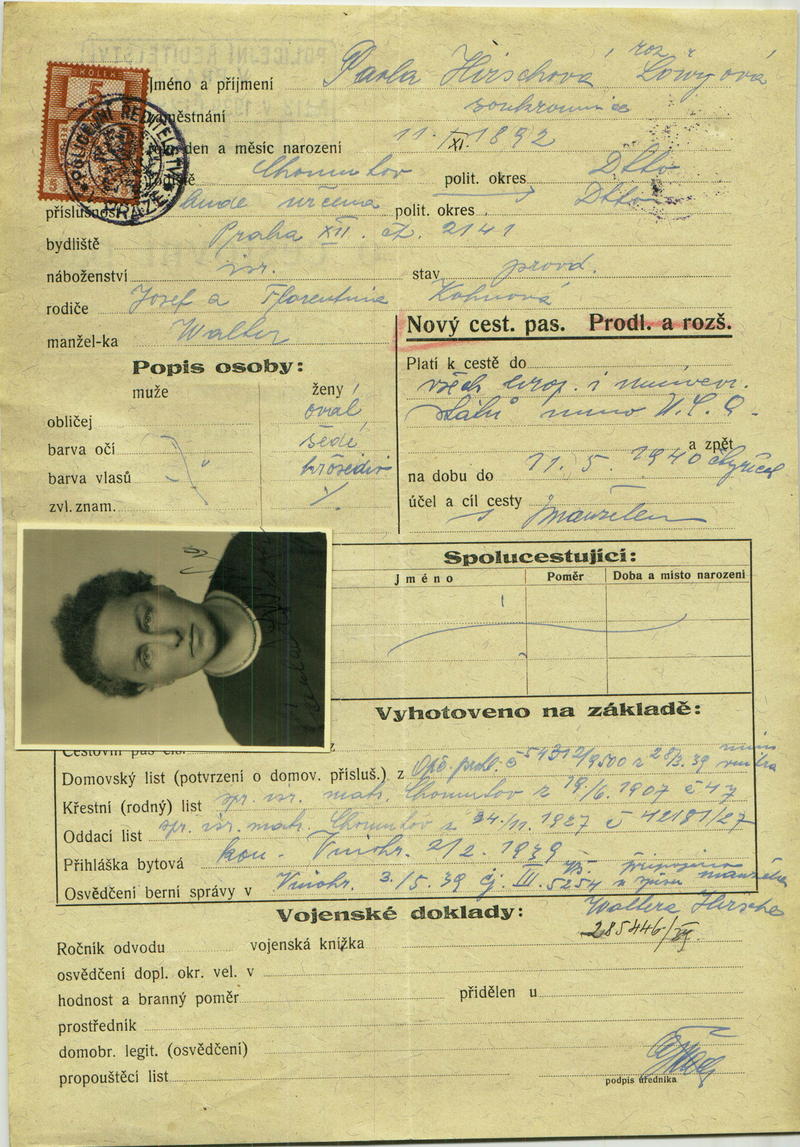 KOLEK
5
POLICEJNÍ ŘEDITELSTVÍ
PRAZE
Jméno a příjmení Pavla Hirschová roz. Löwyová
městnání soukromnice
den a měsíc narození 11. XI. 1892
Chomutov polit. okres Dtto
příslušnost bude určena polit. okres Dtto
bydliště Praha XII. čp. 2141
náboženství isr. stav provd.
rodiče Josef a Florentina Kohnová
manžel-ka Walter
Nový cest. pas. Prodl. a rozš.
Popis osoby:
muže ženy
obličej oval
barva očí šedé
barva vlasů
zvl. znam.
Platí k cestě do
všech evrop. i mimoevr.
států mimo
a zpět
na dobu do 11. 5. 1940
účel a cíl cesty
s manželem
Spolucestující:
Jméno Poměr Doba a místo narození
Vyhotoveno na základě:
Cestovní pas čís. z
Domovský list (potvrzení o domov. přísluš.) z
Křestní (rodný) list isr. matr. Chomutov z 19./6. 1907 č 47
Oddací list isr. matr. Chomutov z 24./11. 1927 č 42181/27
Přihláška bytová kom. Vinohr. 2/2. 1939
Osvědčení berní správy v Vinohr. 3./5. 39 čj. III. 5254
manžela
Waltera Hirsche
285446/
Vojenské doklady:
Ročník odvodu vojenská knížka
osvědčení dopl. okr. vel. v
hodnost a branný poměr přidělen u
prostředník
domobr. legit. (osvědčení)
propouštěcí list
podpis úředníka